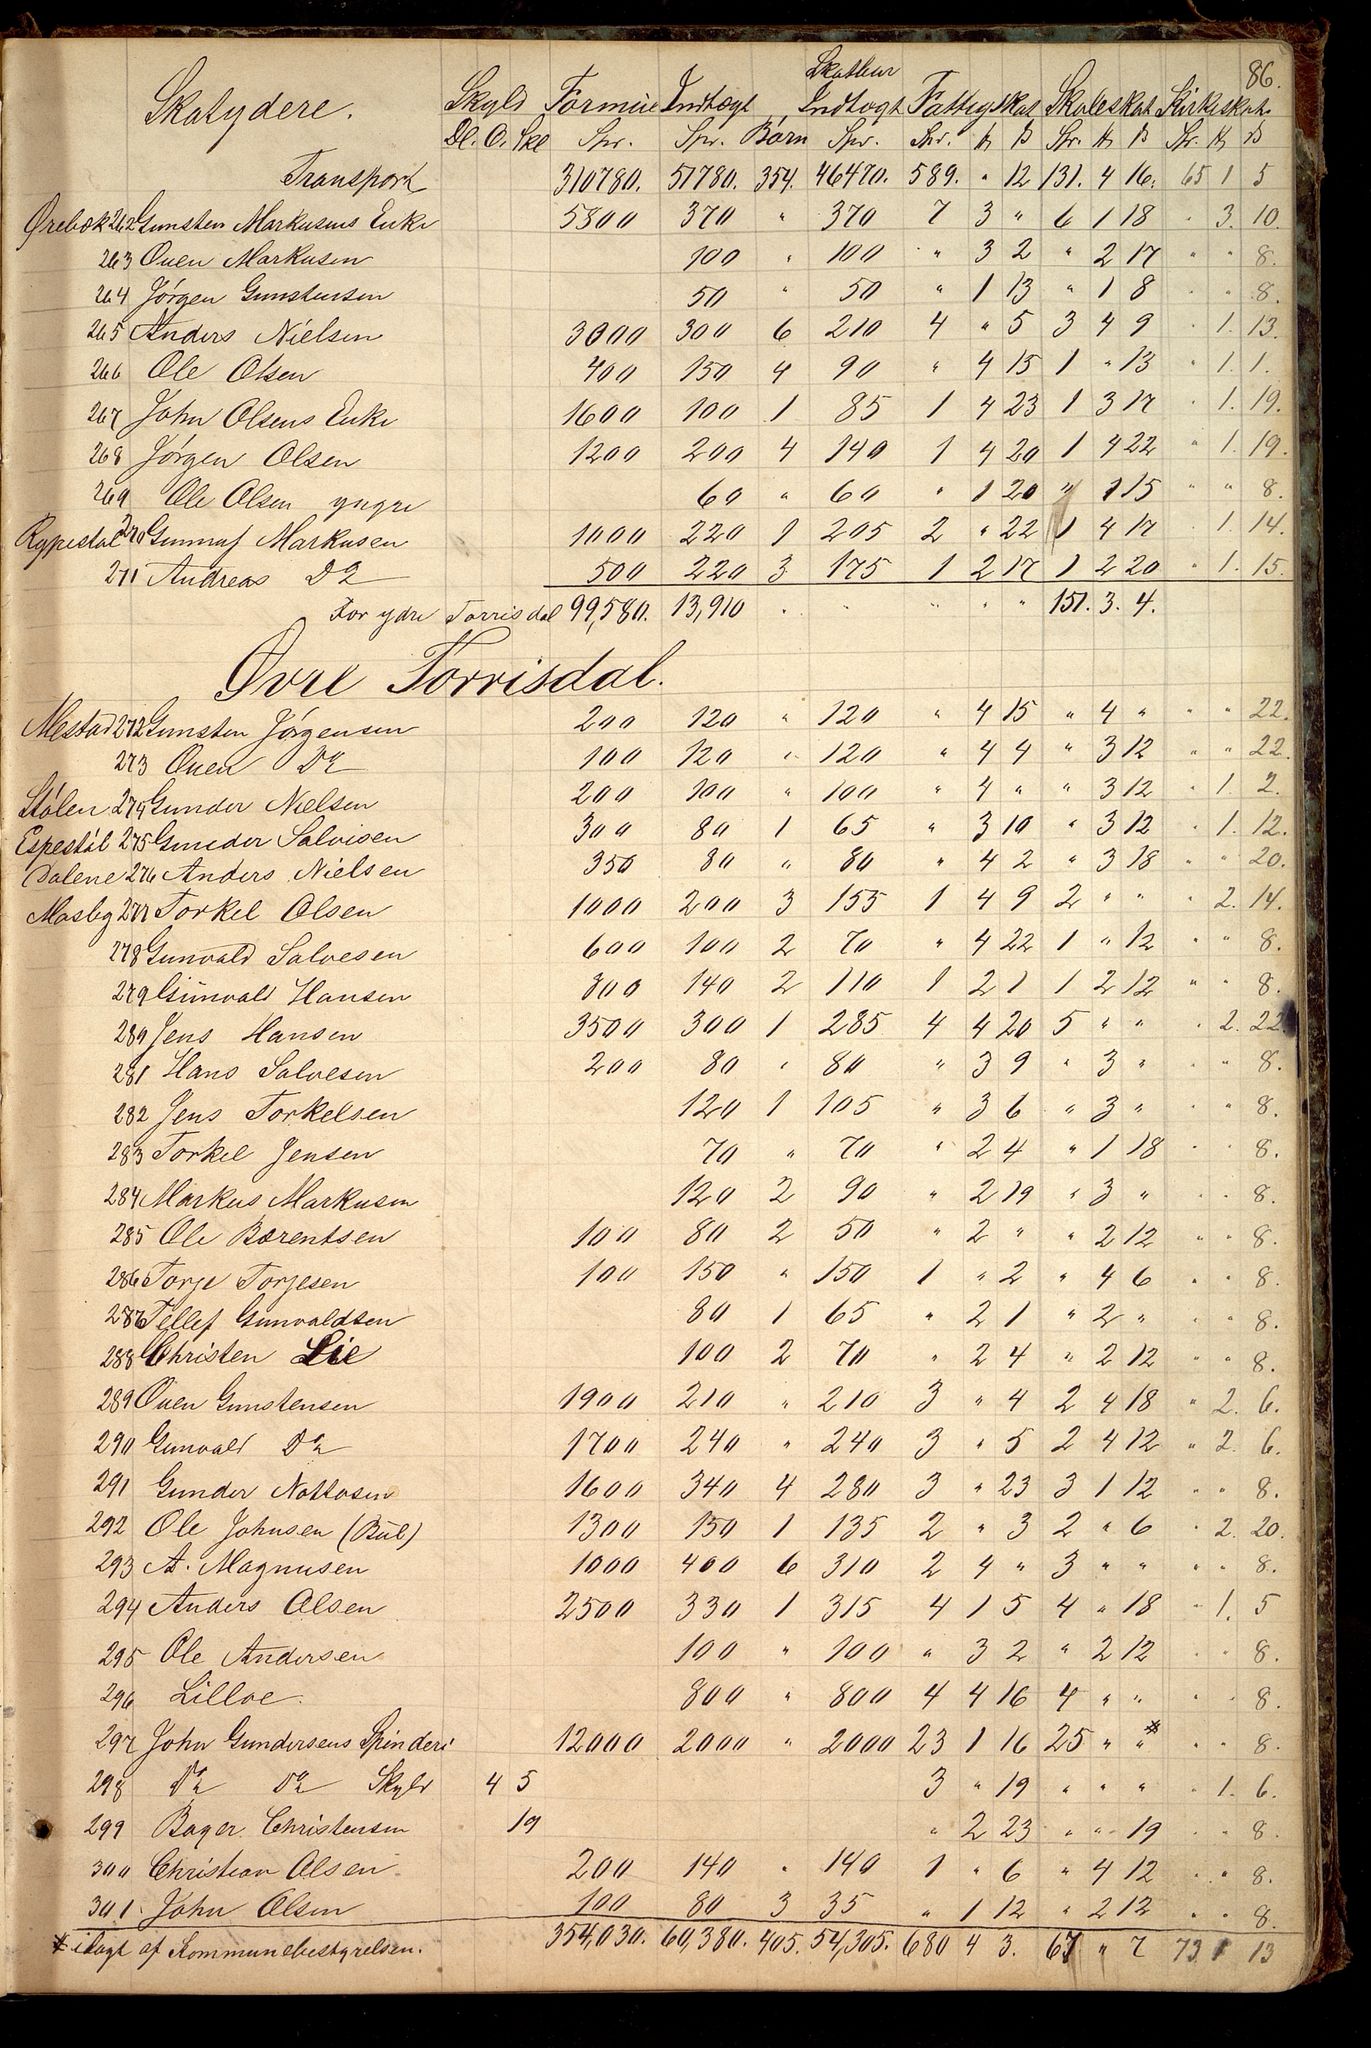 86.
Skatydere. Skyld Formue Indtægt Skatbar Indtægt Fattigskat Skoleskat Kirkeskat.
Dl. O. Skl Spr. Spr. Børn Spr. Spr. H ß Spr. H ß Spr. H ß
Transport 310780. 51780. 354. 46470. 589. " 12 131. 4 16. 65 1 5
Ørebæk 262 Gunsten Markusens Enke 5800 370 " 370 7 3 " 6 1 18 " 3. 10.
263 Ouen Markusen 100 " 100 " 3 2 " 2 17 " " 8.
264 Jørgen Gunstensen 50 " 50 " 1 13 " 1 8 " " 8.
265 Anders Nielsen 3000 300 6 210 4 " 5 3 4 9 " 1. 13.
266 Ole Olsen 400 150 4 90 " 4 15 1 " 13 " 1. 1.
267 John Olsens Enke 1600 100 1 85 1 4 23 1 3 17 " 1. 19.
268 Jørgen Olsen 1200 200 4 140 1 4 20 1 4 22 " 1. 19.
269 Ole Olsen yngre 60 " 60 " 1 20 " 1 15 " " 8.
Rypestøl 270 Gunnuf Markusen 1000 220 1 205 2 " 22 1 4 17 " 1. 14.
271 Andreas Do 500 220 3 175 1 2 17 1 2 20 " 1. 15.
For ydre Torrisdal 99,580. 13,910 " " " " " 151. 3. 4.
Øvre Torrisdal.
Mestad 272 Gunsten Jørgensen 200 120 " 120 " 4 15 " 4 " " " 22.
273 Ouen Do 100 120 " 120 " 4 4 " 3 12 " " 22.
Stølen 274 Gunder Nielsen 200 100 " 100 " 4 " " 3 12 " 1. 2.
Espestøl 275 Gunder Salvisen 300 80 1 65 " 3 10 " 3 12 " 1. 12.
Dalene 276 Anders Nielsen 350 80 " 80 " 4 2 " 3 18 " " 20.
Mosby 277 Torkel Olsen 1000 200 3 155 1 4 9 2 " " " 2. 14.
278 Gunvald Salvesen 600 100 2 70 " 4 22 1 " 12 " " 8.
279 Gunvald Hansen 800 140 2 110 1 2 1 1 2 12 " " 8.
280 Jens Hansen 3500 300 1 285 4 4 20 5 " " " 2. 22
281 Hans Salvesen 200 80 " 80 " 3 9 " 3 " " " 8.
282 Jens Torkelsen 120 1 105 " 3 6 " 3 " " " 8.
283 Torkel Jensen 70 " 70 " 2 4 " 1 18 " " 8.
284 Markus Markusen 120 2 90 " 2 19 " 3 " " " 8.
285 Ole Bærentsen 100 80 2 50 " 2 " " 2 12 " " 8.
286 Torje Torjesen 100 150 " 150 1 " 2 " 4 6 " " 8.
287 Tellef Gunvaldsen 80 1 65 " 2 1 " 2 " " " 8.
288 Christen Lie 100 2 70 " 2 4 " 2 12 " " 8.
289 Ouen Gunstensen 1900 210 " 210 3 " 4 2 4 18 " 2. 6.
290 Gunvald Do 1700 240 " 240 3 " 5 2 4 12 " 2. 6.
291 Gunder Nottosen 1600 340 4 280 3 " 23 3 1 12 " " 8.
292 Ole Johnsen (Bûl) 1300 150 1 135 2 " 3 2 " 6 " 2. 20.
293 A. Magnusen 1000 400 6 310 2 4 " 3 " " " " 8.
294 Anders Olsen 2500 330 1 315 4 1 5 4 " 18 " 1. 5
295 Ole Andersen 100 " 100 " 3 2 " 2 12 " " 8.
296 Lilloe. 800 " 800 4 4 16 4 " " " " 8.
297 John Gundersens Spinderi 12000 2000 " 2000 23 1 16 25 " "* " " 8.
298 Do Do Skyld 4 5 3 " 19 " " " " 1. 6.
299 Bager Christensen 19 " 2 23 " " 19 " " 8.
300 Christian Olsen 200 140 " 140 1 " 6 " 4 12 " " 8.
301. John Olsen 100 80 3 35 " 1 12 " 2 12 " " 8.
* ilagt af Kommunebestyrelsen. 354,030. 60,380. 405. 54,305. 680 4 3. 67 " 7 73. 1 13